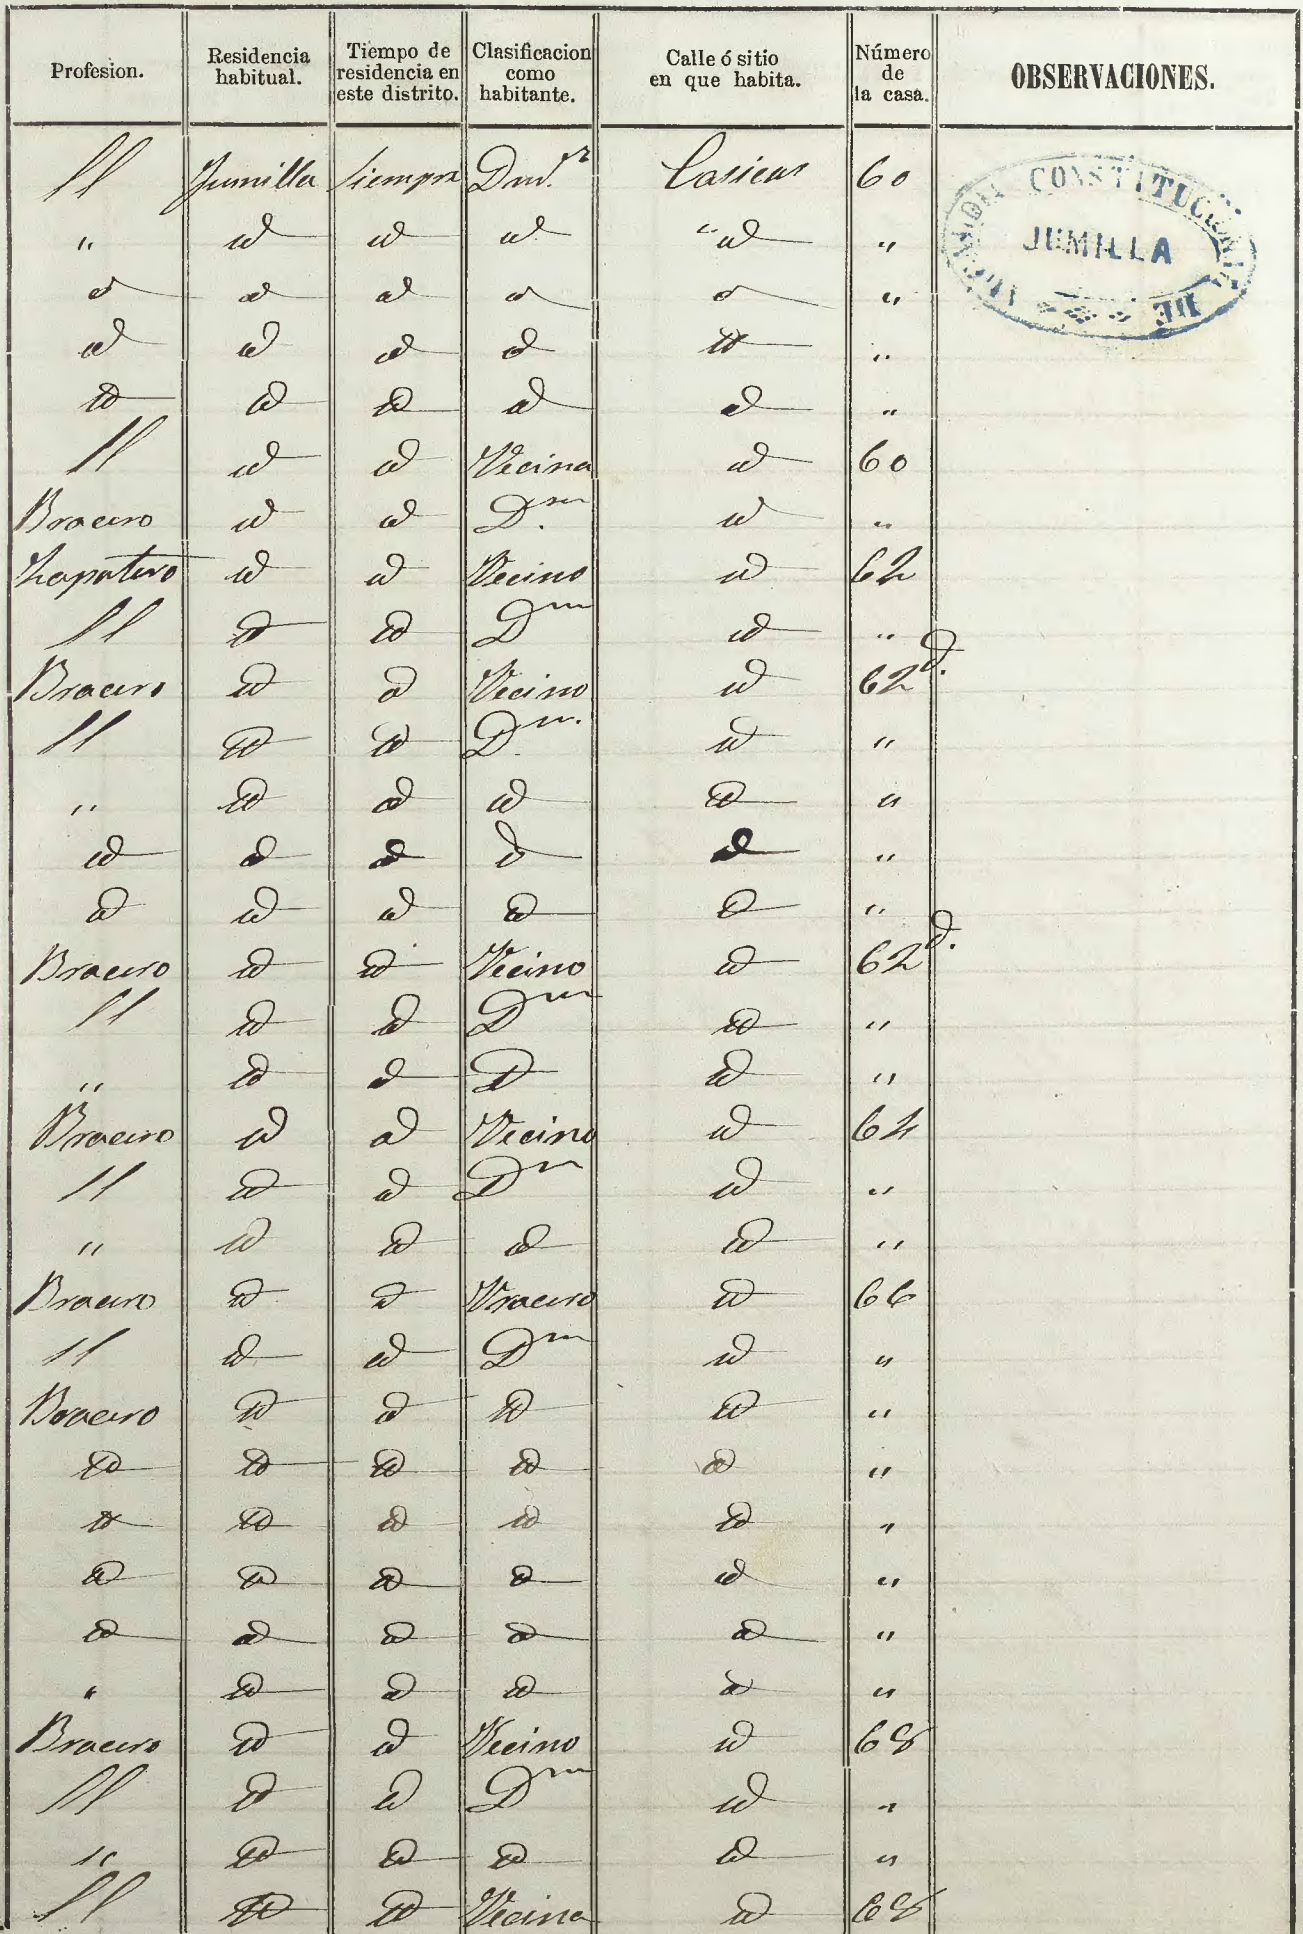 Profesion. Residencia habitual. Tiempo de residencia en este distrito. Clasificacion como habitante. Calle ó sitio en que habita. Número de la casa. OBSERVACIONES.
" Jumilla Siempre Casicas 60
" id id id "id "
id id id id id "
id id id id id "
id id id id id "
" id id Vecina id 60
Bracero id id Dm id "
Zapatero id id Vecino id 62
" id id Dm id "
Bracero id id Vecino id 62 d.
" id id Dm. id "
" id id id id "
id id id id id "
id id id id id "
Bracero id id Vecino id 62 d.
" id id Dm id "
" id id D id "
Bracero id id Vecino id 64
" id id Dm id "
" id id id id "
Bracero id id Vracero id 66
" id id Dm id "
Bracero id id id id "
id id id id id "
id id id id id "
id id id id id "
id id id id id "
" id id id id "
Bracero id id Vecino id 68
" id id Dm id "
" id id id id "
" id id Vecina id 68
ALCALDIA CONSTITUCIONAL DE
JUMILLA